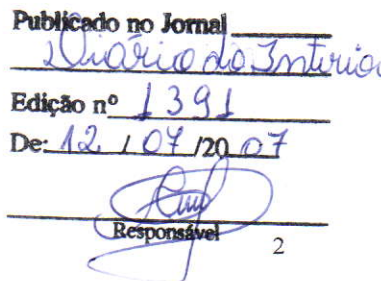 Publicado no Jornal
Diário do Interior
Edição nº 1391
De: 12 / 07 /20 07
Responsável
2